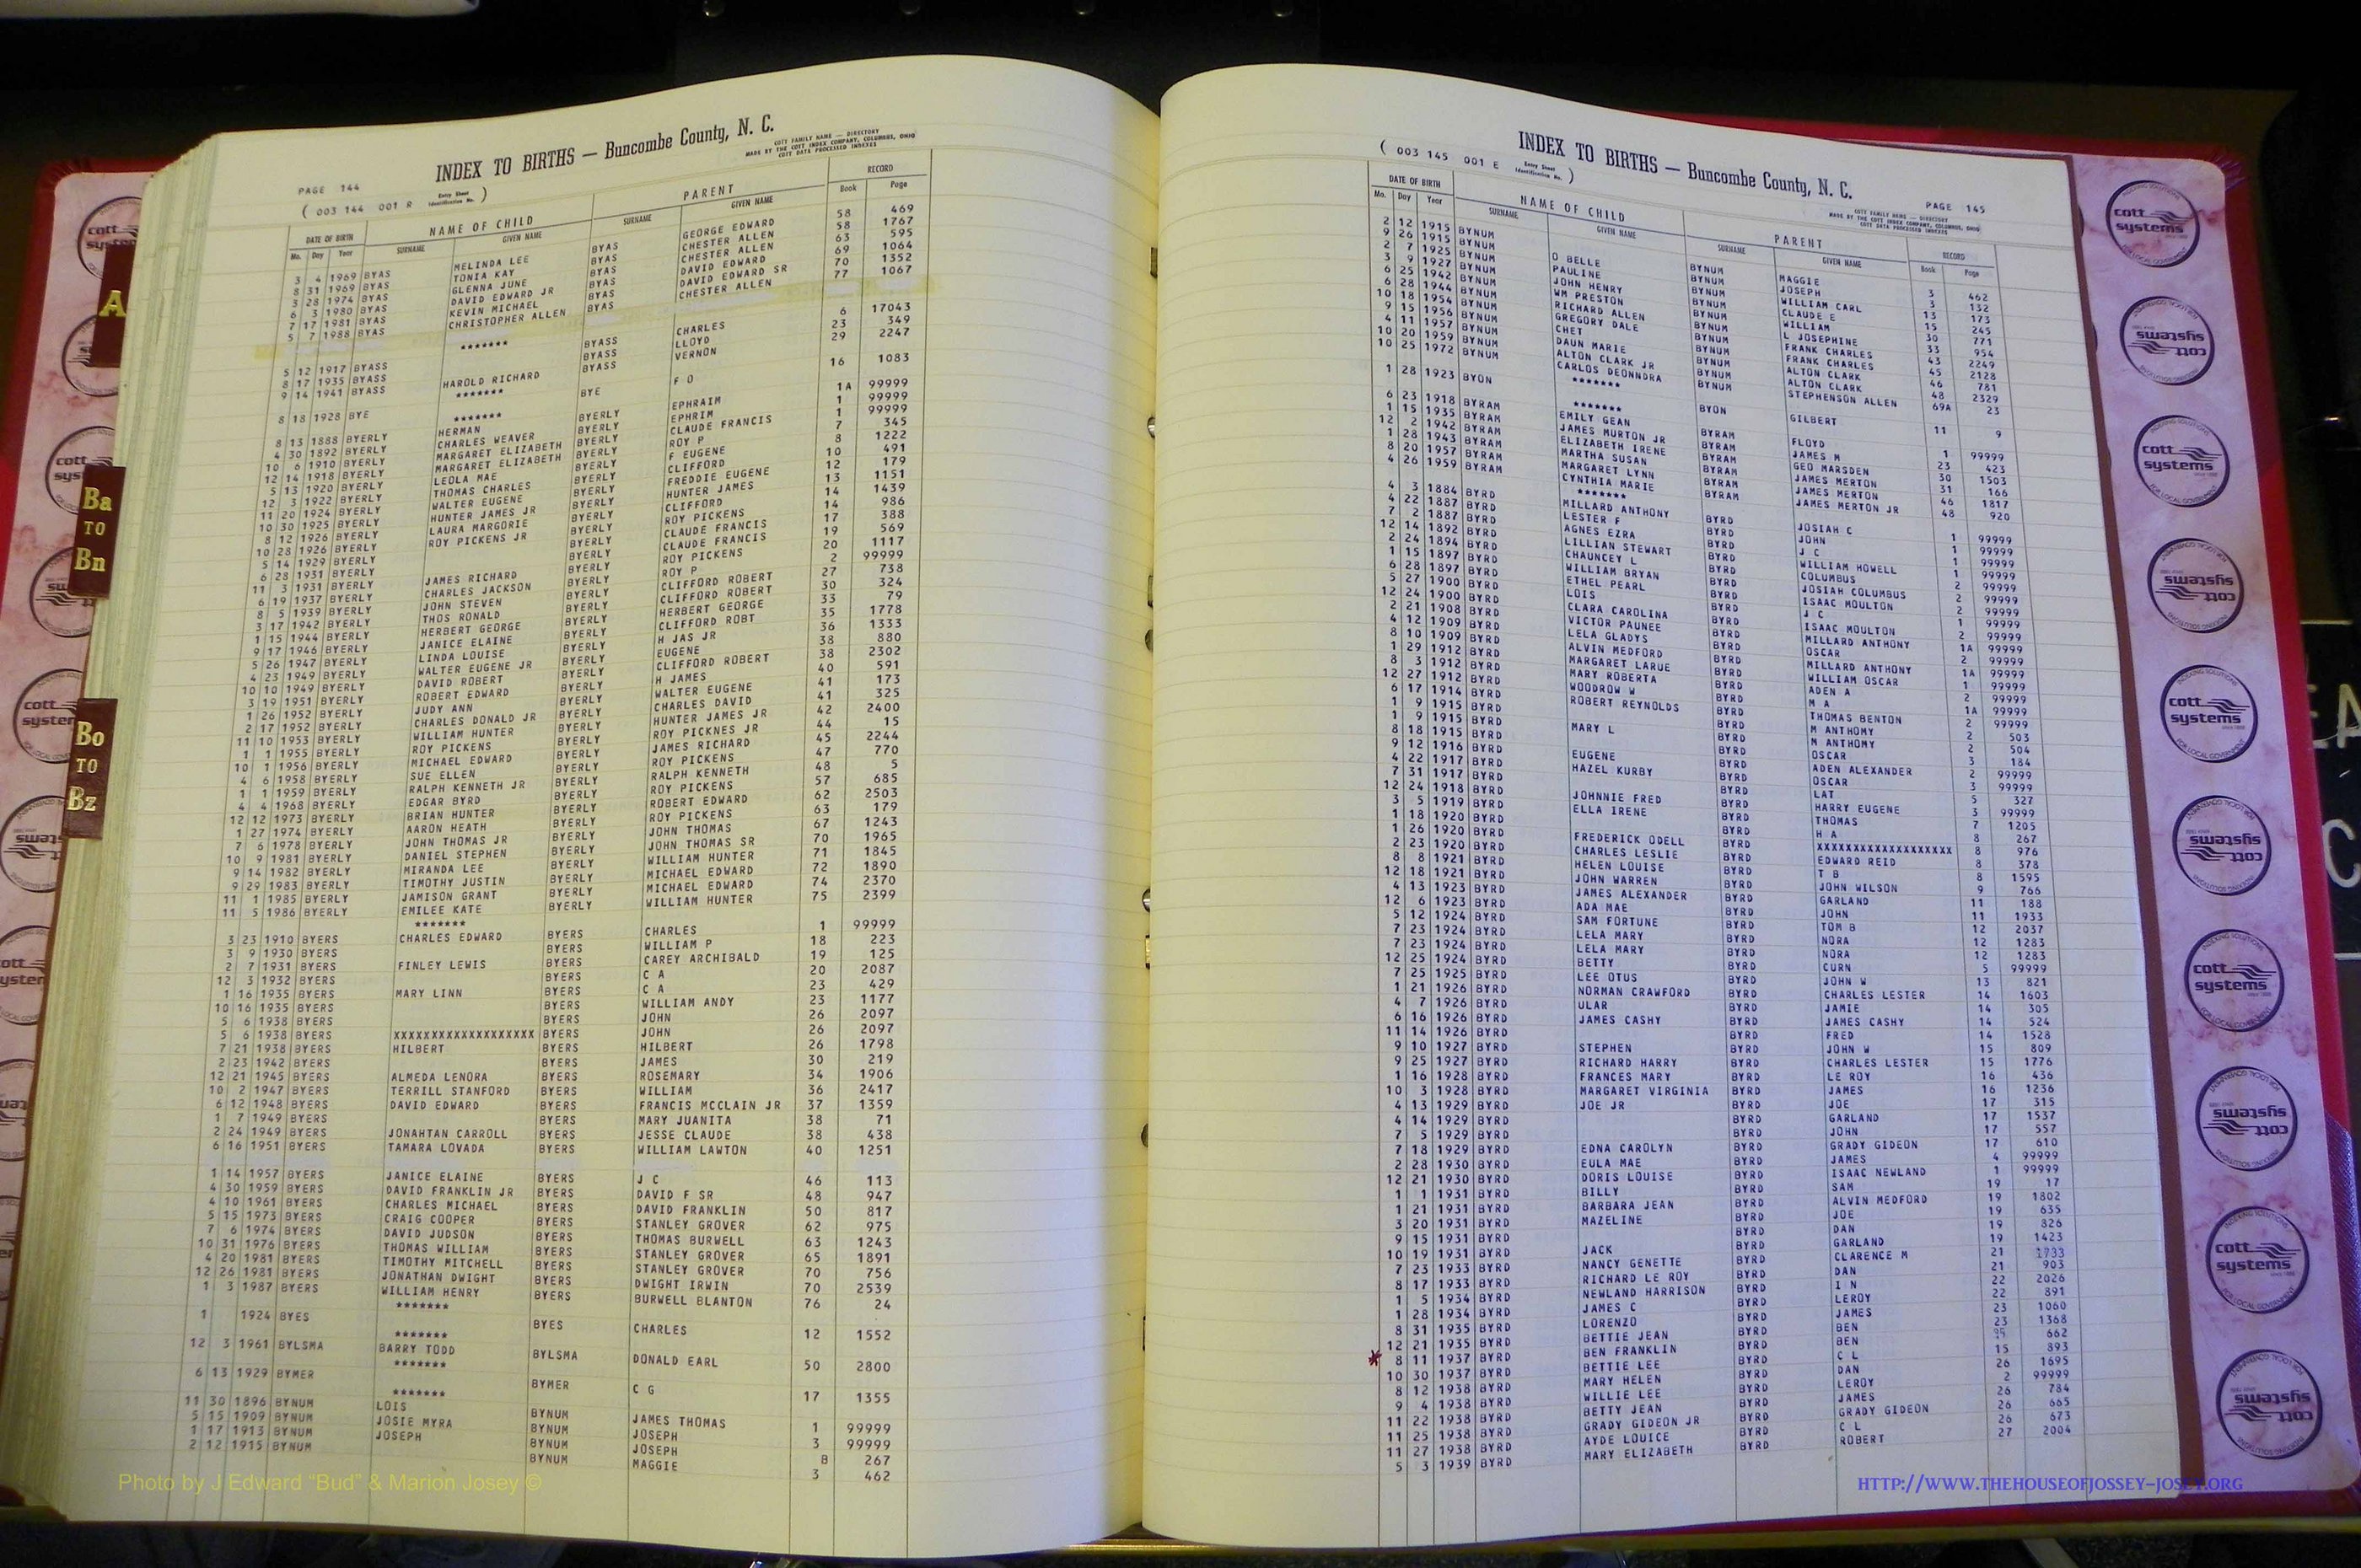 INDEX TO BIRTHS — Buncombe County, N. C.
COTT FAMILY NAME — DIRECTORY
MADE BY THE COTT INDEX COMPANY, COLUMBUS, OHIO
COTT DATA PROCESSED INDEXES
PAGE 144
( 003 144 001 R Entry Sheet Identification No. )
DATE OF BIRTH NAME OF CHILD PARENT RECORD
Mo. Day Year SURNAME GIVEN NAME SURNAME GIVEN NAME Book Page
3 4 1969 BYAS MELINDA LEE BYAS GEORGE EDWARD 58 469
8 31 1969 BYAS TONIA KAY BYAS CHESTER ALLEN 58 1767
3 28 1974 BYAS GLENNA JUNE BYAS CHESTER ALLEN 63 595
6 3 1980 BYAS DAVID EDWARD JR BYAS DAVID EDWARD 69 1064
7 17 1981 BYAS KEVIN MICHAEL BYAS DAVID EDWARD SR 70 1352
5 7 1988 BYAS CHRISTOPHER ALLEN BYAS CHESTER ALLEN 77 1067
*******
5 12 1917 BYASS BYASS CHARLES 6 17043
8 17 1935 BYASS BYASS LLOYD 23 349
9 14 1941 BYASS HAROLD RICHARD BYASS VERNON 29 2247
*******
8 18 1928 BYE BYE F O 16 1083
*******
8 13 1888 BYERLY HERMAN BYERLY EPHRAIM 1A 99999
4 30 1892 BYERLY CHARLES WEAVER BYERLY EPHRIM 1 99999
10 6 1910 BYERLY MARGARET ELIZABETH BYERLY CLAUDE FRANCIS 1 99999
12 14 1918 BYERLY MARGARET ELIZABETH BYERLY ROY P 7 345
5 13 1920 BYERLY LEOLA MAE BYERLY F EUGENE 8 1222
12 3 1922 BYERLY THOMAS CHARLES BYERLY CLIFFORD 10 491
11 20 1924 BYERLY WALTER EUGENE BYERLY FREDDIE EUGENE 12 179
10 30 1925 BYERLY HUNTER JAMES JR BYERLY HUNTER JAMES 13 1151
8 12 1926 BYERLY LAURA MARGORIE BYERLY CLIFFORD 14 1439
10 28 1926 BYERLY ROY PICKENS JR BYERLY ROY PICKENS 14 986
5 14 1929 BYERLY BYERLY CLAUDE FRANCIS 17 388
6 28 1931 BYERLY BYERLY CLAUDE FRANCIS 19 569
11 3 1931 BYERLY JAMES RICHARD BYERLY ROY PICKENS 20 1117
6 19 1937 BYERLY CHARLES JACKSON BYERLY ROY P 2 99999
8 5 1939 BYERLY JOHN STEVEN BYERLY CLIFFORD ROBERT 27 738
3 17 1942 BYERLY THOS RONALD BYERLY CLIFFORD ROBERT 30 324
1 15 1944 BYERLY HERBERT GEORGE BYERLY HERBERT GEORGE 33 79
9 17 1946 BYERLY JANICE ELAINE BYERLY CLIFFORD ROBT 35 1778
5 26 1947 BYERLY LINDA LOUISE BYERLY H JAS JR 36 1333
4 23 1949 BYERLY WALTER EUGENE JR BYERLY EUGENE 38 880
10 10 1949 BYERLY DAVID ROBERT BYERLY CLIFFORD ROBERT 38 2302
3 19 1951 BYERLY ROBERT EDWARD BYERLY H JAMES 40 591
1 26 1952 BYERLY JUDY ANN BYERLY WALTER EUGENE 41 173
2 17 1952 BYERLY CHARLES DONALD JR BYERLY CHARLES DAVID 41 325
11 10 1953 BYERLY WILLIAM HUNTER BYERLY HUNTER JAMES JR 42 2400
1 1 1955 BYERLY ROY PICKENS BYERLY ROY PICKNES JR 44 15
10 1 1956 BYERLY MICHAEL EDWARD BYERLY JAMES RICHARD 45 2244
4 6 1958 BYERLY SUE ELLEN BYERLY ROY PICKENS 47 770
1 1 1959 BYERLY RALPH KENNETH JR BYERLY RALPH KENNETH 48 5
4 4 1968 BYERLY EDGAR BYRD BYERLY ROY PICKENS 57 685
12 12 1973 BYERLY BRIAN HUNTER BYERLY ROBERT EDWARD 62 2503
1 27 1974 BYERLY AARON HEATH BYERLY ROY PICKENS 63 179
7 6 1978 BYERLY JOHN THOMAS JR BYERLY JOHN THOMAS 67 1243
10 9 1981 BYERLY DANIEL STEPHEN BYERLY JOHN THOMAS SR 70 1965
9 14 1982 BYERLY MIRANDA LEE BYERLY WILLIAM HUNTER 71 1845
9 29 1983 BYERLY TIMOTHY JUSTIN BYERLY MICHAEL EDWARD 72 1890
11 1 1985 BYERLY JAMISON GRANT BYERLY MICHAEL EDWARD 74 2370
11 5 1986 BYERLY EMILEE KATE BYERLY WILLIAM HUNTER 75 2399
*******
3 23 1910 BYERS CHARLES EDWARD BYERS CHARLES 1 99999
3 9 1930 BYERS BYERS WILLIAM P 18 223
2 7 1931 BYERS FINLEY LEWIS BYERS CAREY ARCHIBALD 19 125
12 3 1932 BYERS BYERS C A 20 2087
1 16 1935 BYERS MARY LINN BYERS C A 23 429
10 16 1935 BYERS BYERS WILLIAM ANDY 23 1177
5 6 1938 BYERS BYERS JOHN 26 2097
5 6 1938 BYERS XXXXXXXXXXXXXXXXXXX BYERS JOHN 26 2097
7 21 1938 BYERS HILBERT BYERS HILBERT 26 1798
2 23 1942 BYERS BYERS JAMES 30 219
12 21 1945 BYERS ALMEDA LENORA BYERS ROSEMARY 34 1906
10 2 1947 BYERS TERRILL STANFORD BYERS WILLIAM 36 2417
6 12 1948 BYERS DAVID EDWARD BYERS FRANCIS MCCLAIN JR 37 1359
1 7 1949 BYERS BYERS MARY JUANITA 38 71
2 24 1949 BYERS JONAHTAN CARROLL BYERS JESSE CLAUDE 38 438
6 16 1951 BYERS TAMARA LOVADA BYERS WILLIAM LAWTON 40 1251
1 14 1957 BYERS JANICE ELAINE BYERS J C 46 113
4 30 1959 BYERS DAVID FRANKLIN JR BYERS DAVID F SR 48 947
4 10 1961 BYERS CHARLES MICHAEL BYERS DAVID FRANKLIN 50 817
5 15 1973 BYERS CRAIG COOPER BYERS STANLEY GROVER 62 975
7 6 1974 BYERS DAVID JUDSON BYERS THOMAS BURWELL 63 1243
10 31 1976 BYERS THOMAS WILLIAM BYERS STANLEY GROVER 65 1891
4 20 1981 BYERS TIMOTHY MITCHELL BYERS STANLEY GROVER 70 756
12 26 1981 BYERS JONATHAN DWIGHT BYERS DWIGHT IRWIN 70 2539
1 3 1987 BYERS WILLIAM HENRY BYERS BURWELL BLANTON 76 24
*******
1 1924 BYES BYES CHARLES 12 1552
*******
12 3 1961 BYLSMA BARRY TODD BYLSMA DONALD EARL 50 2800
*******
6 13 1929 BYMER BYMER C G 17 1355
*******
11 30 1896 BYNUM LOIS BYNUM JAMES THOMAS 1 99999
5 15 1909 BYNUM JOSIE MYRA BYNUM JOSEPH 3 99999
1 17 1913 BYNUM JOSEPH BYNUM JOSEPH 8 267
2 12 1915 BYNUM BYNUM MAGGIE 3 462
INDEX TO BIRTHS — Buncombe County, N. C.
COTT FAMILY NAME — DIRECTORY
MADE BY THE COTT INDEX COMPANY, COLUMBUS, OHIO
COTT DATA PROCESSED INDEXES
( 003 145 001 E Entry Sheet Identification No. )
PAGE 145
DATE OF BIRTH NAME OF CHILD PARENT RECORD
Mo. Day Year SURNAME GIVEN NAME SURNAME GIVEN NAME Book Page
2 12 1915 BYNUM BYNUM MAGGIE 3 462
9 26 1915 BYNUM O BELLE BYNUM JOSEPH 3 132
2 7 1925 BYNUM PAULINE BYNUM WILLIAM CARL 13 173
3 9 1927 BYNUM JOHN HENRY BYNUM CLAUDE E 15 245
6 25 1942 BYNUM WM PRESTON BYNUM WILLIAM 30 771
6 28 1944 BYNUM RICHARD ALLEN BYNUM L JOSEPHINE 33 954
10 18 1954 BYNUM GREGORY DALE BYNUM FRANK CHARLES 43 2249
9 15 1956 BYNUM CHET BYNUM FRANK CHARLES 45 2128
4 11 1957 BYNUM DAUN MARIE BYNUM ALTON CLARK 46 781
10 20 1959 BYNUM ALTON CLARK JR BYNUM ALTON CLARK 48 2329
10 25 1972 BYNUM CARLOS DEONNDRA BYNUM STEPHENSON ALLEN 69A 23
*******
1 28 1923 BYON BYON GILBERT 11 9
*******
6 23 1918 BYRAM EMILY GEAN BYRAM FLOYD 1 99999
1 15 1935 BYRAM JAMES MURTON JR BYRAM JAMES M 23 423
12 2 1942 BYRAM ELIZABETH IRENE BYRAM GEO MARSDEN 30 1503
1 28 1943 BYRAM MARTHA SUSAN BYRAM JAMES MERTON 31 166
8 20 1957 BYRAM MARGARET LYNN BYRAM JAMES MERTON 46 1817
4 26 1959 BYRAM CYNTHIA MARIE BYRAM JAMES MERTON JR 48 920
*******
4 3 1884 BYRD MILLARD ANTHONY BYRD JOSIAH C 1 99999
4 22 1887 BYRD LESTER F BYRD JOHN 1 99999
7 2 1887 BYRD AGNES EZRA BYRD J C 1 99999
12 14 1892 BYRD LILLIAN STEWART BYRD WILLIAM HOWELL 1 99999
2 24 1894 BYRD CHAUNCEY L BYRD COLUMBUS 2 99999
1 15 1897 BYRD WILLIAM BRYAN BYRD JOSIAH COLUMBUS 2 99999
6 28 1897 BYRD ETHEL PEARL BYRD ISAAC MOULTON 2 99999
5 27 1900 BYRD LOIS BYRD J C 1 99999
12 24 1900 BYRD CLARA CAROLINA BYRD ISAAC MOULTON 2 99999
2 21 1908 BYRD VICTOR PAUNEE BYRD MILLARD ANTHONY 1A 99999
4 12 1909 BYRD LELA GLADYS BYRD OSCAR 2 99999
8 10 1909 BYRD ALVIN MEDFORD BYRD MILLARD ANTHONY 1A 99999
1 29 1912 BYRD MARGARET LARUE BYRD WILLIAM OSCAR 1 99999
8 3 1912 BYRD MARY ROBERTA BYRD ADEN A 2 99999
12 27 1912 BYRD WOODROW W BYRD M A 1A 99999
6 17 1914 BYRD ROBERT REYNOLDS BYRD THOMAS BENTON 2 99999
1 9 1915 BYRD BYRD M ANTHOMY 2 503
1 9 1915 BYRD MARY L BYRD M ANTHOMY 2 504
8 18 1915 BYRD BYRD OSCAR 3 184
9 12 1916 BYRD EUGENE BYRD ADEN ALEXANDER 2 99999
4 22 1917 BYRD HAZEL KURBY BYRD OSCAR 3 99999
7 31 1917 BYRD BYRD LAT 5 327
12 24 1918 BYRD JOHNNIE FRED BYRD HARRY EUGENE 3 99999
3 5 1919 BYRD ELLA IRENE BYRD THOMAS 7 1205
1 18 1920 BYRD BYRD H A 8 267
1 26 1920 BYRD FREDERICK ODELL BYRD XXXXXXXXXXXXXXXXXXX 8 976
2 23 1920 BYRD CHARLES LESLIE BYRD EDWARD REID 8 378
8 8 1921 BYRD HELEN LOUISE BYRD T B 8 1595
12 18 1921 BYRD JOHN WARREN BYRD JOHN WILSON 9 766
4 13 1923 BYRD JAMES ALEXANDER BYRD GARLAND 11 188
12 6 1923 BYRD ADA MAE BYRD JOHN 11 1933
5 12 1924 BYRD SAM FORTUNE BYRD TOM B 12 2037
7 23 1924 BYRD LELA MARY BYRD NORA 12 1283
7 23 1924 BYRD LELA MARY BYRD NORA 12 1283
12 25 1924 BYRD BETTY BYRD CURN 5 99999
7 25 1925 BYRD LEE OTUS BYRD JOHN W 13 821
1 21 1926 BYRD NORMAN CRAWFORD BYRD CHARLES LESTER 14 1603
4 7 1926 BYRD ULAR BYRD JAMIE 14 305
6 16 1926 BYRD JAMES CASHY BYRD JAMES CASHY 14 524
11 14 1926 BYRD BYRD FRED 14 1528
9 10 1927 BYRD STEPHEN BYRD JOHN W 15 809
9 25 1927 BYRD RICHARD HARRY BYRD CHARLES LESTER 15 1776
1 16 1928 BYRD FRANCES MARY BYRD LE ROY 16 436
10 3 1928 BYRD MARGARET VIRGINIA BYRD JAMES 16 1236
4 13 1929 BYRD JOE JR BYRD JOE 17 315
4 14 1929 BYRD BYRD GARLAND 17 1537
7 5 1929 BYRD BYRD JOHN 17 557
7 18 1929 BYRD EDNA CAROLYN BYRD GRADY GIDEON 17 610
2 28 1930 BYRD EULA MAE BYRD JAMES 4 99999
12 21 1930 BYRD DORIS LOUISE BYRD ISAAC NEWLAND 1 99999
1 1 1931 BYRD BILLY BYRD SAM 19 17
1 21 1931 BYRD BARBARA JEAN BYRD ALVIN MEDFORD 19 1802
3 20 1931 BYRD MAZELINE BYRD JOE 19 635
9 15 1931 BYRD BYRD DAN 19 826
10 19 1931 BYRD JACK BYRD GARLAND 19 1423
7 23 1933 BYRD NANCY GENETTE BYRD CLARENCE M 21 1733
8 17 1933 BYRD RICHARD LE ROY BYRD DAN 21 903
1 5 1934 BYRD NEWLAND HARRISON BYRD I N 22 2026
1 28 1934 BYRD JAMES C BYRD LEROY 22 891
8 31 1935 BYRD LORENZO BYRD JAMES 23 1060
12 21 1935 BYRD BETTIE JEAN BYRD BEN 23 1368
8 11 1937 BYRD BEN FRANKLIN BYRD BEN 662
10 30 1937 BYRD BETTIE LEE BYRD C L 15 893
8 12 1938 BYRD MARY HELEN BYRD DAN 26 1695
9 4 1938 BYRD WILLIE LEE BYRD LEROY 2 99999
11 22 1938 BYRD BETTY JEAN BYRD JAMES 26 784
11 25 1938 BYRD GRADY GIDEON JR BYRD GRADY GIDEON 26 665
11 27 1938 BYRD AYDE LOUICE BYRD C L 26 673
5 3 1939 BYRD MARY ELIZABETH BYRD ROBERT 27 2004
A
Ba TO Bn
Bo TO Bz
cott systems
FOR LOCAL GOVERNMENT
Photo by J Edward “Bud” & Marion Josey ©
HTTP://WWW.THEHOUSEOFJOSSEY-JOSEY.ORG